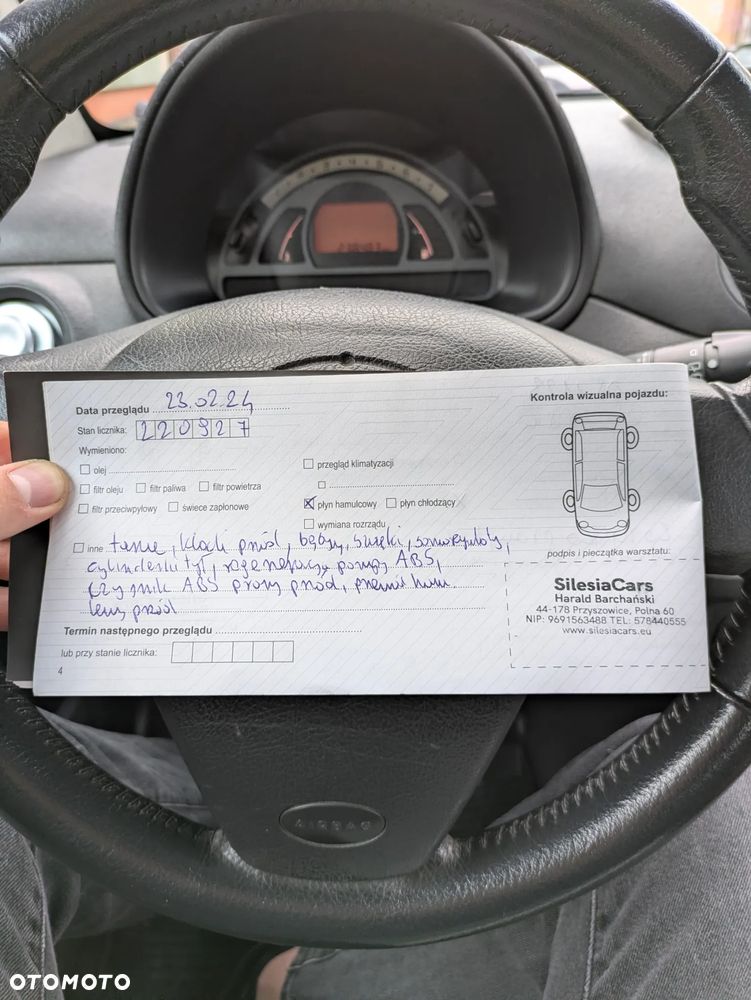 Data przeglądu 23.02.24
Stan licznika: 220927
Wymieniono:
olej
filtr oleju filtr paliwa filtr powietrza
filtr przeciwpyłowy świece zapłonowe
przegląd klimatyzacji
płyn hamulcowy płyn chłodzący
wymiana rozrządu
inne tarcze, klocki przód, bębny, szczęki, samoregulatory,
cylinderki tył, regeneracja pompy ABS,
czujnik ABS prawy przód, przewód ham.
lewy przód
Termin następnego przeglądu
lub przy stanie licznika:
4
Kontrola wizualna pojazdu:
podpis i pieczątka warsztatu:
SilesiaCars
Harald Barchański
44-178 Przyszowice, Polna 60
NIP: 9691563488 TEL: 578440555
www.silesiacars.eu
AIRBAG
OTOMOTO